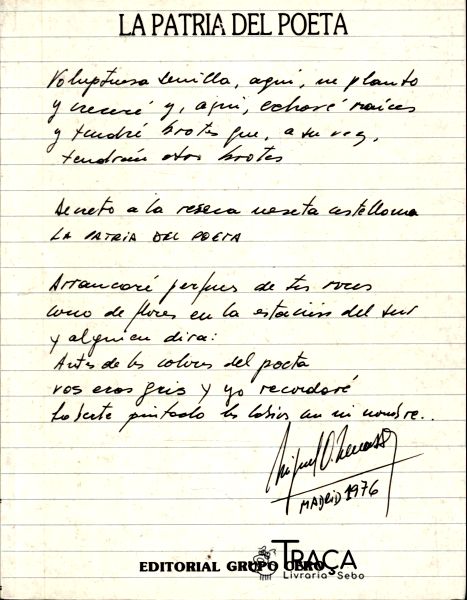 LA PATRIA DEL POETA
Voluptuosa semilla, aquí, me planto
y creceré y, aquí, echaré raíces
y tendré brotes que, a su vez,
tendrán otros brotes
Decreto a la reseca meseta castellana
LA PATRIA DEL POETA
Arrancaré perfumes de tus rocas
como de flores en la estación del sur
y alguien dirá:
Antes de los colores del poeta
vos eras gris y yo recordaré
haberte pintado los labios con mi nombre..
Miguel O. Menassa
MADRID 1976
EDITORIAL GRUPO CERO
TRAÇA
Livraria Sebo